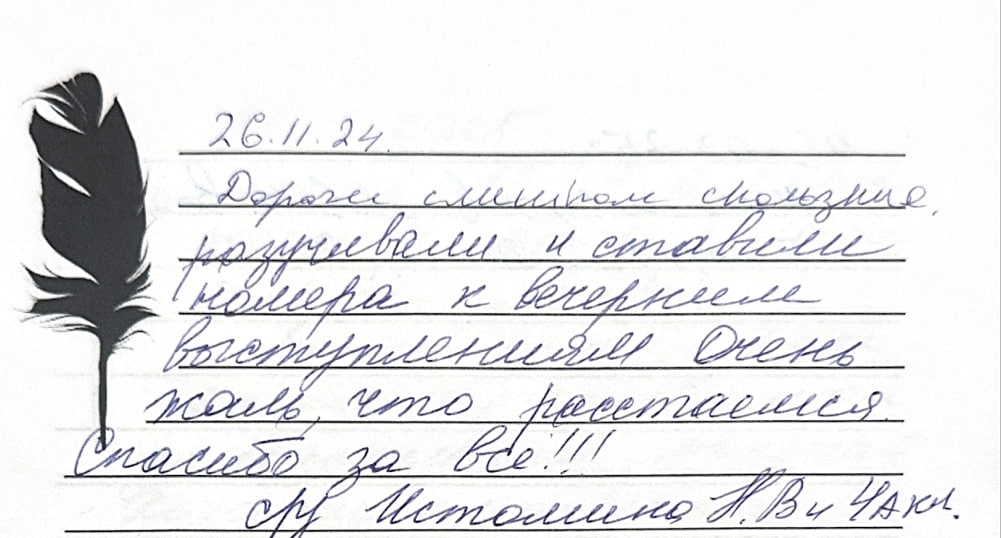 26.11.24.
Дороги слишком скользкие,
разучивали и ставили
номера к вечерним
выступлениям Очень
жаль, что расстаемся.
Спасибо за всё!!!
Истомина Н.В и 4А кл.